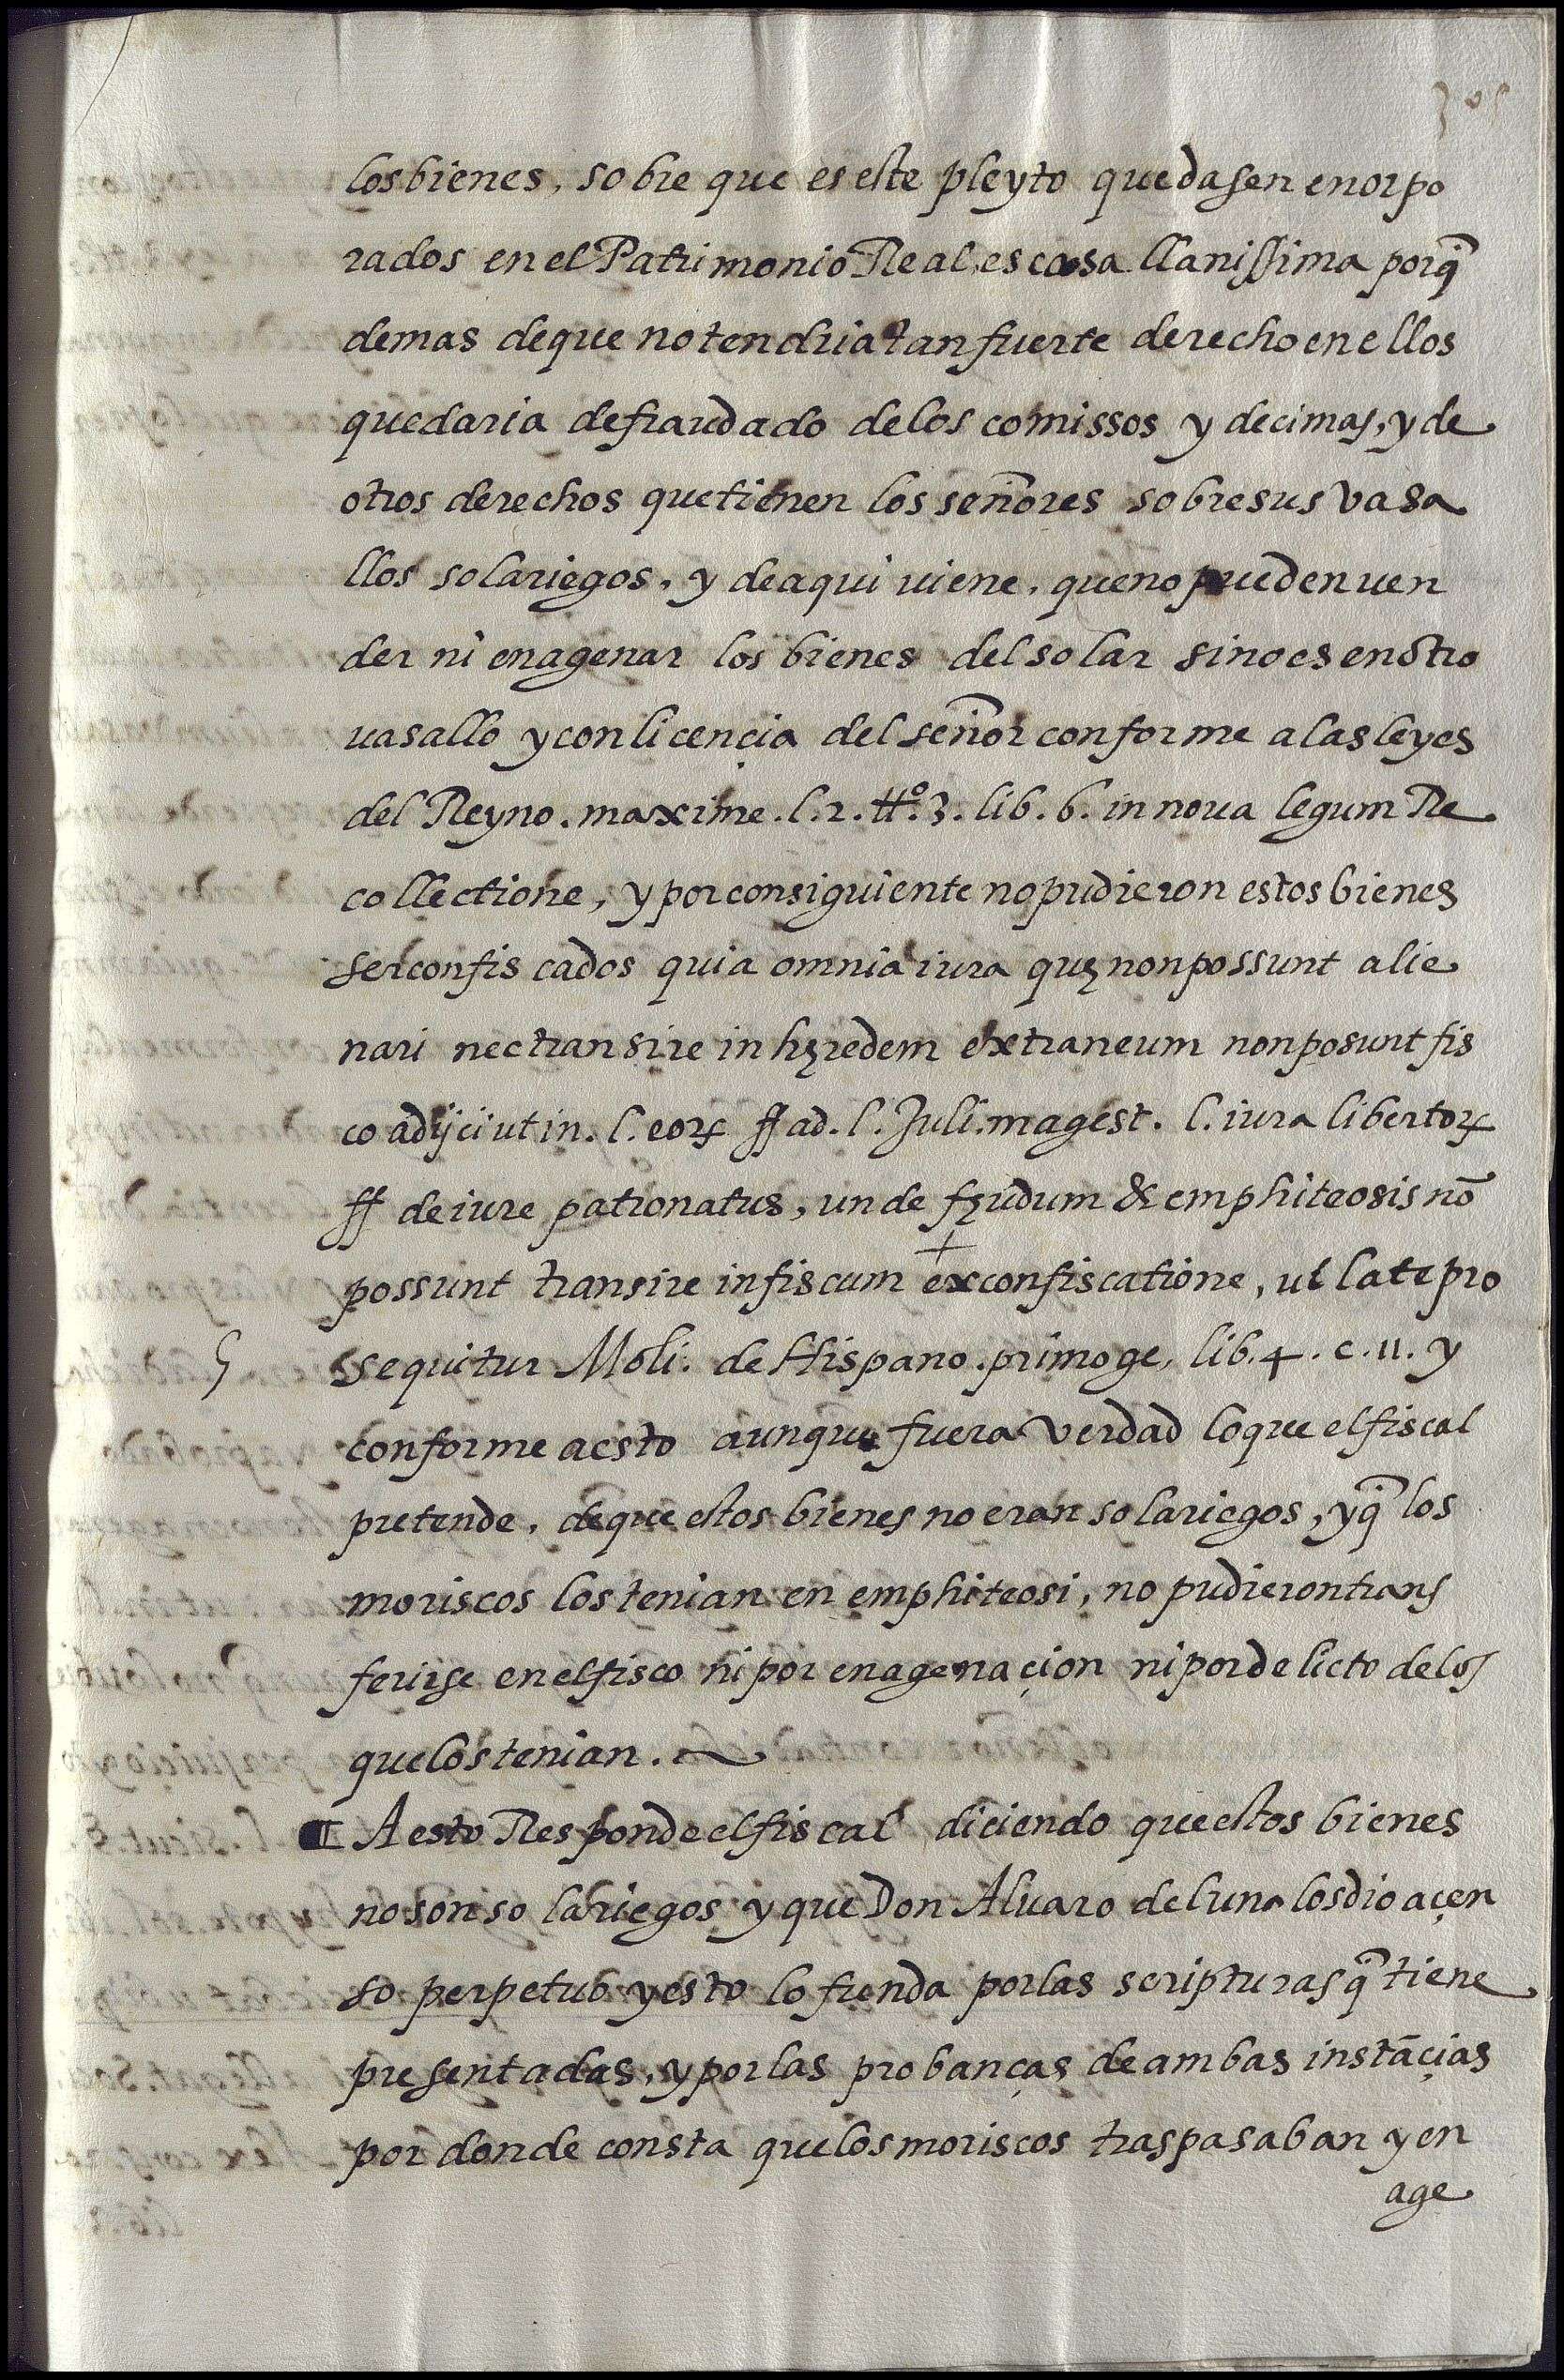 305
los bienes, sobre que es este pleyto quedasen enorpo
rados en el Patrimonio Real, es cosa llanissima porq̃
demas de que no tendria tan fuerte derecho en ellos
quedaria defraudado de los comissos y decimas, y de
otros derechos que tienen los señores sobre sus vasa
llos solariegos, y de aqui viene, que no pueden uen
der ni enagenar los bienes del solar sino es en otro
uasallo y con licençia del señor conforme a las leyes
del Reyno. maxime. l. 2. ttº. 3. lib. 6. in noua legum Re
collectione, y por consiguiente no pudieron estos bienes
ser confiscados quia omnia iura quę non possunt alie
nari nec transire in hęredem extraneum non posunt fis
co adijci ut in. l. eorꝝ ff ad. l. Juli. magest. l. iura libertorꝝ
ff de iure patronatus, unde fęudum & emphiteosis nõ
+
possunt transire in fiscum ex confiscatione, ut late pro
ꟍ sequitur Moli. de Hispano. primoge, lib. 4. c. 11. y
conforme a esto aunque fuera verdad lo que el fiscal
pretende, de que estos bienes no eran solariegos, y q̃ los
moriscos los tenian en emphiteosi, no pudieron trans
ferirse en el fisco ni por enagenaçion ni por delicto de los
que los tenian.
¶ A esto Responde el fiscal diciendo que estos bienes
no son solariegos y que Don Aluaro de luna los dio a çen
so perpetuo y esto lo funda por las scripturas q̃ tiene
presentadas, y por las probanças de ambas instãçias
por donde consta que los moriscos traspasaban y en
age